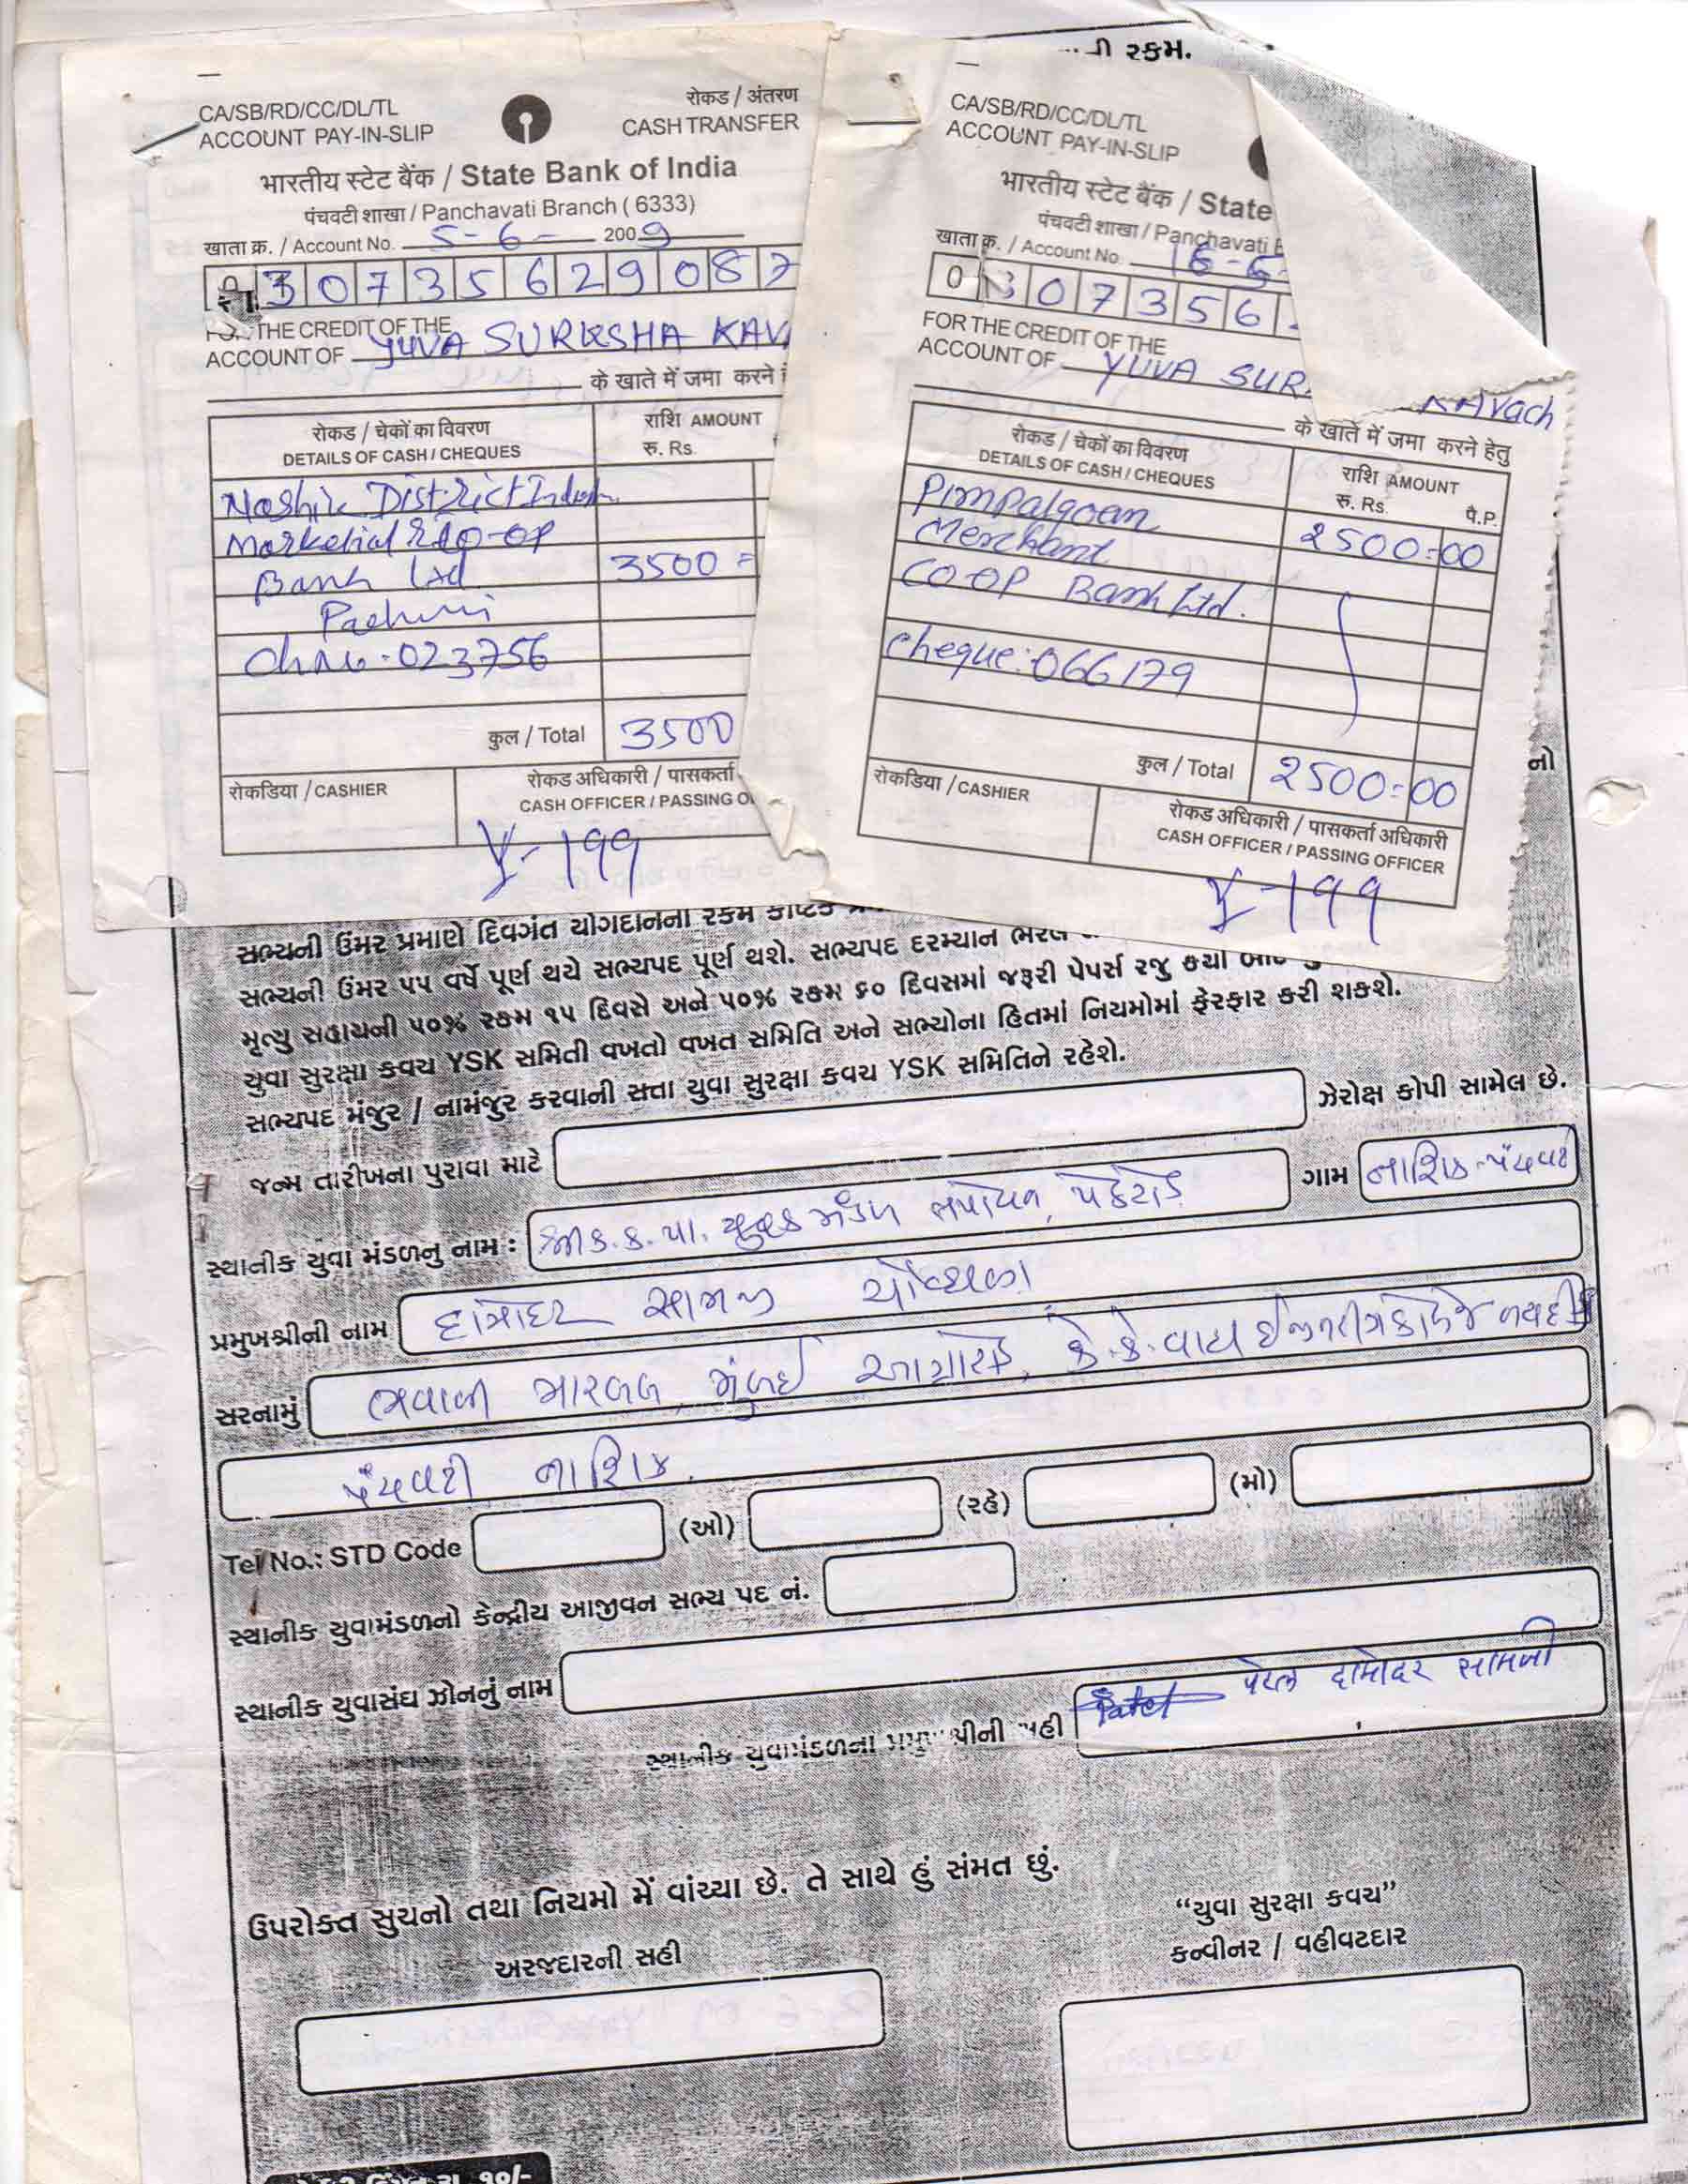 ની રકમ.
CA/SB/RD/CC/DL/TL
ACCOUNT PAY-IN-SLIP
रोकड / अंतरण
CASH TRANSFER
भारतीय स्टेट बैंक / State Bank of India
पंचवटी शाखा / Panchavati Branch ( 6333)
खाता क्र. / Account No. 5-6- 2009
30735629087
THE CREDIT OF THE
ACCOUNT OF YUVA SURKSHA KAV
के खाते में जमा करने
रोकड / चेकों का विवरण
DETAILS OF CASH / CHEQUES
राशि AMOUNT
रु. Rs.
Nashik District
Bank Ltd 3500 =
Ch No. 023756
कुल / Total 3500
रोकडिया / CASHIER
रोकड अधिकारी / पासकर्ता
CASH OFFICER / PASSING
Y-199
CA/SB/RD/CC/DL/TL
ACCOUNT PAY-IN-SLIP
भारतीय स्टेट बैंक / State
पंचवटी शाखा / Panchavati
खाता क्र. / Account No.
0307356
FOR THE CREDIT OF THE
ACCOUNT OF YUVA SUR KAVach
के खाते में जमा करने हेतु
रोकड / चेकों का विवरण
DETAILS OF CASH / CHEQUES
राशि AMOUNT
रु. Rs. पै.P.
Pimpalgoan 2500=00
Merchant
CO-OP Bank Ltd.
cheque: 066179
कुल / Total 2500=00
रोकडिया / CASHIER
रोकड अधिकारी / पासकर्ता अधिकारी
CASH OFFICER / PASSING OFFICER
Y-199
નો
સભ્યની ઉંમર પ્રમાણે દિવગંત યોગદાનના રકમ
સભ્યની ઉંમર ૫૫ વર્ષે પૂર્ણ થયે સભ્યપદ પૂર્ણ થશે. સભ્યપદ દરમ્યાન
મૃત્યુ સહાયની ૫૦% રકમ ૧૫ દિવસે અને ૫૦% રકમ ૬૦ દિવસમાં જરૂરી પેપર્સ રજુ કર્યા
યુવા સુરક્ષા કવચ YSK સમિતી વખતો વખત સમિતિ અને સભ્યોના હિતમાં નિયમોમાં ફેરફાર કરી શકશે.
સભ્યપદ મંજુર / નામંજુર કરવાની સત્તા યુવા સુરક્ષા કવચ YSK સમિતિને રહેશે.
જન્મ તારીખના પુરાવા માટે ઝેરોક્ષ કોપી સામેલ છે.
સ્થાનીક યુવા મંડળનુ નામ : શ્રી ક.ક.પા. યુવક મંડળ તપોવન, ગામ નાશિક-પંચવટી
પ્રમુખશ્રીની નામ દામોદર સામજી
સરનામું ભવાની મારબલ, મુંબઈ આગ્રારોડ, કે.કે.વાઘ
પંચવટી નાશિક.
Tel No.: STD Code (ઓ) (રહે) (મો)
સ્થાનીક યુવામંડળનો કેન્દ્રીય આજીવન સભ્ય પદ નં.
સ્થાનીક યુવાસંઘ ઝોનનું નામ
સ્થાનીક યુવામંડળના સહી પટેલ દામોદર સામજી
ઉપરોક્ત સુચનો તથા નિયમો મેં વાંચ્યા છે. તે સાથે હું સંમત છું.
અરજદારની સહી
“યુવા સુરક્ષા કવચ”
કન્વીનર / વહીવટદાર